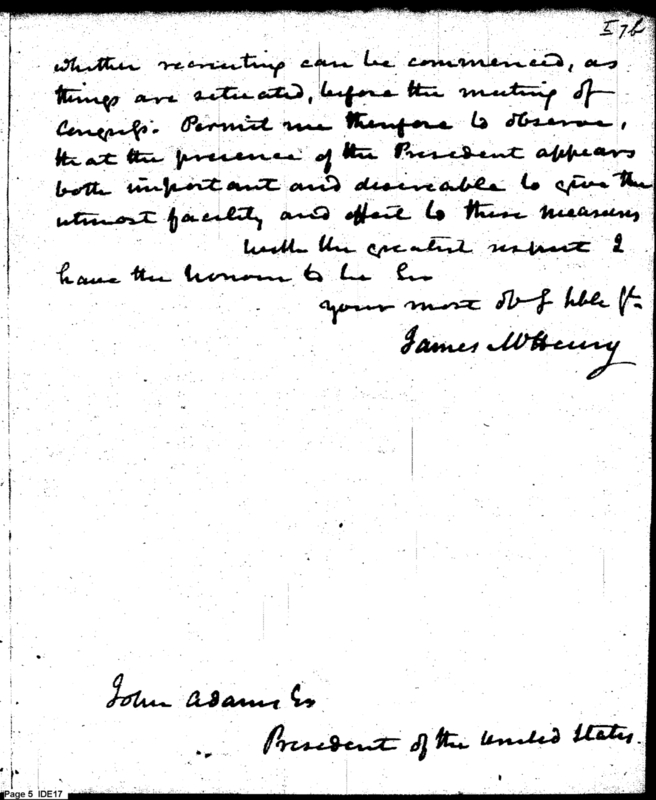 I 7b
whether recruiting can be commenced, as
things are situated, before the meeting of
Congress. Permit me therefore to observe,
that the presence of the President appears
both important and desireable to give the
utmost facility and effect to these measures
With the greatest respect I
have the honour to be Sir
your most ob S hble St
James McHenry
John Adams Es
President of the United States.
Page 5 IDE17